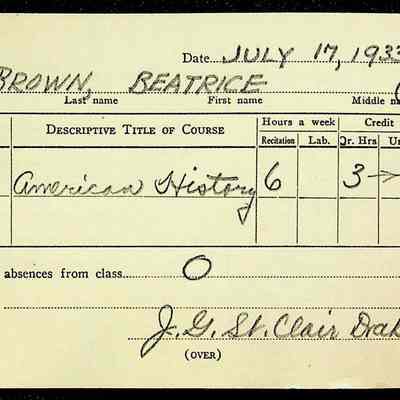 Date JULY 17, 1933
BROWN, BEATRICE
Last name First name Middle
DESCRIPTIVE TITLE OF COURSE Hours a week Credit
Recitation Lab. Qr. Hrs
American History 6 3 →
absences from class O
J. G. St. Clair
(OVER)